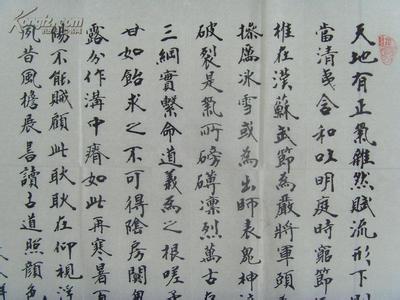 天地有正氣雜然賦流形下則
當清夷含和吐明庭時窮節
椎在漢蘇武節為嚴將軍頭
操厲冰雪或為出師表鬼神泣
破裂是氣所磅礴凜烈萬古存
三綱實繫命道義為之根嗟
甘如飴求之不可得陰房闃鬼
露分作溝中瘠如此再寒暑百
陽不能賊顧此耿耿在仰視浮
夙昔風檐展書讀古道照顏色